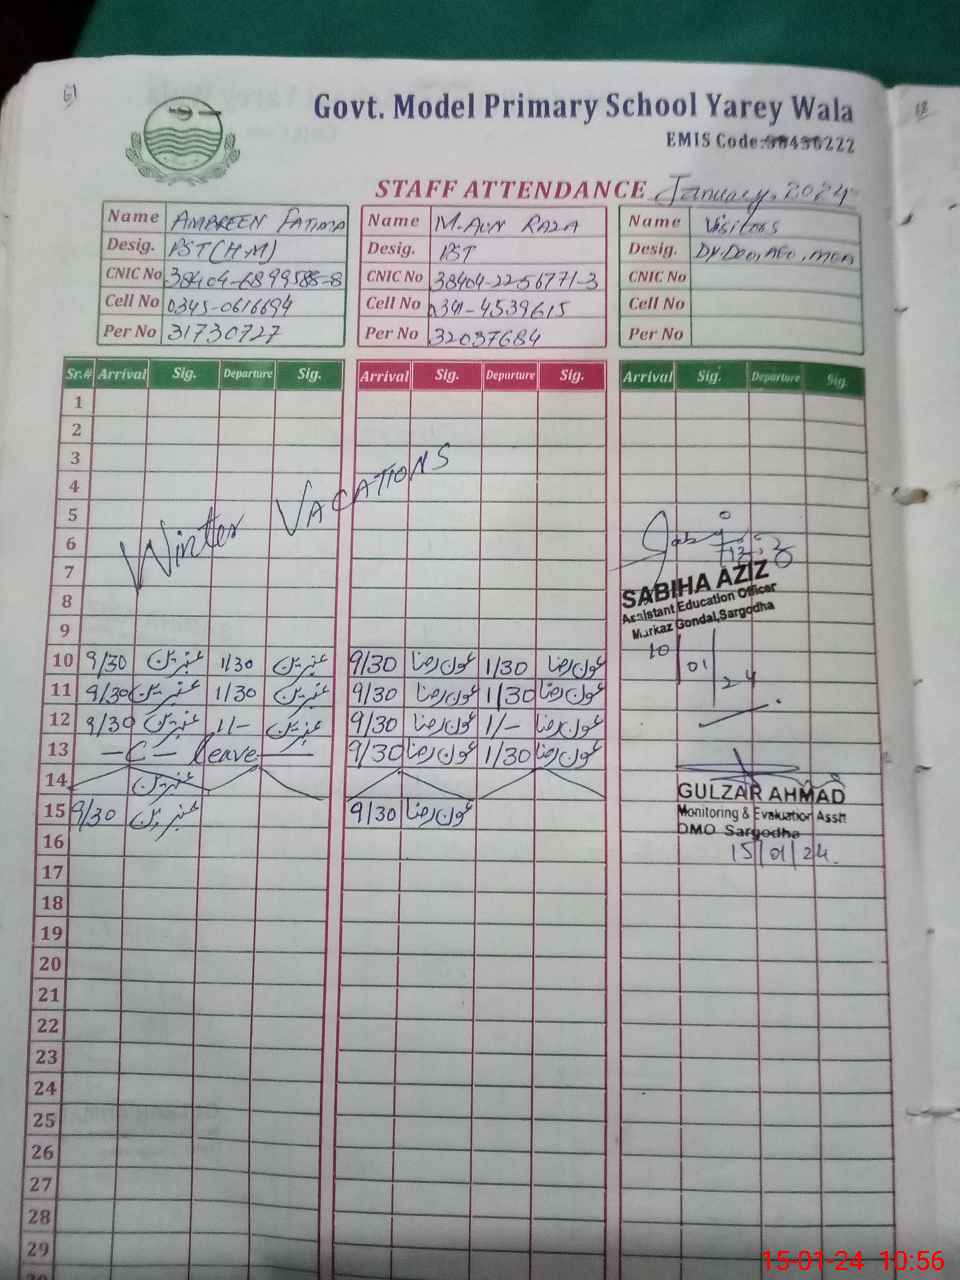 61
Govt. Model Primary School Yarey Wala
EMIS Code:38430222
STAFF ATTENDANCE January, 2024
Name AMBREEN FATIMA
Desig. PST(H.M)
CNIC No 38404-6899585-8
Cell No 0345-0616694
Per No 31730727
Name M. AUN RAZA
Desig. PST
CNIC No 38404-2256771-3
Cell No 0341-4539615
Per No 32037684
Name Visitors
Desig. Dy.Deo, AEO, MEA
CNIC No
Cell No
Per No
Sr.# Arrival Sig. Departure Sig. Arrival Sig. Departure Sig. Arrival Sig. Departure Sig.
1
2
3
4
Winter VACATIONS
5
6
7
8
9
SABIHA AZIZ
Assistant Education Officer
Markaz Gondal, Sargodha
10/01/24
10 9/30 عنبرین 1/30 عنبرین 9/30 عون رضا 1/30 عون رضا
11 9/30 عنبرین 1/30 عنبرین 9/30 عون رضا 1/30 عون رضا
12 9/30 عنبرین 1/- عنبرین 9/30 عون رضا 1/- عون رضا
13 — C — leave — 9/30 عون رضا 1/30 عون رضا
14 عنبرین
15 9/30 عنبرین 9/30 عون رضا
GULZAR AHMAD
Monitoring & Evaluation Asstt
DMO Sargodha
15/01/24.
16
17
18
19
20
21
22
23
24
25
26
27
28
29
15-01-24 10:56